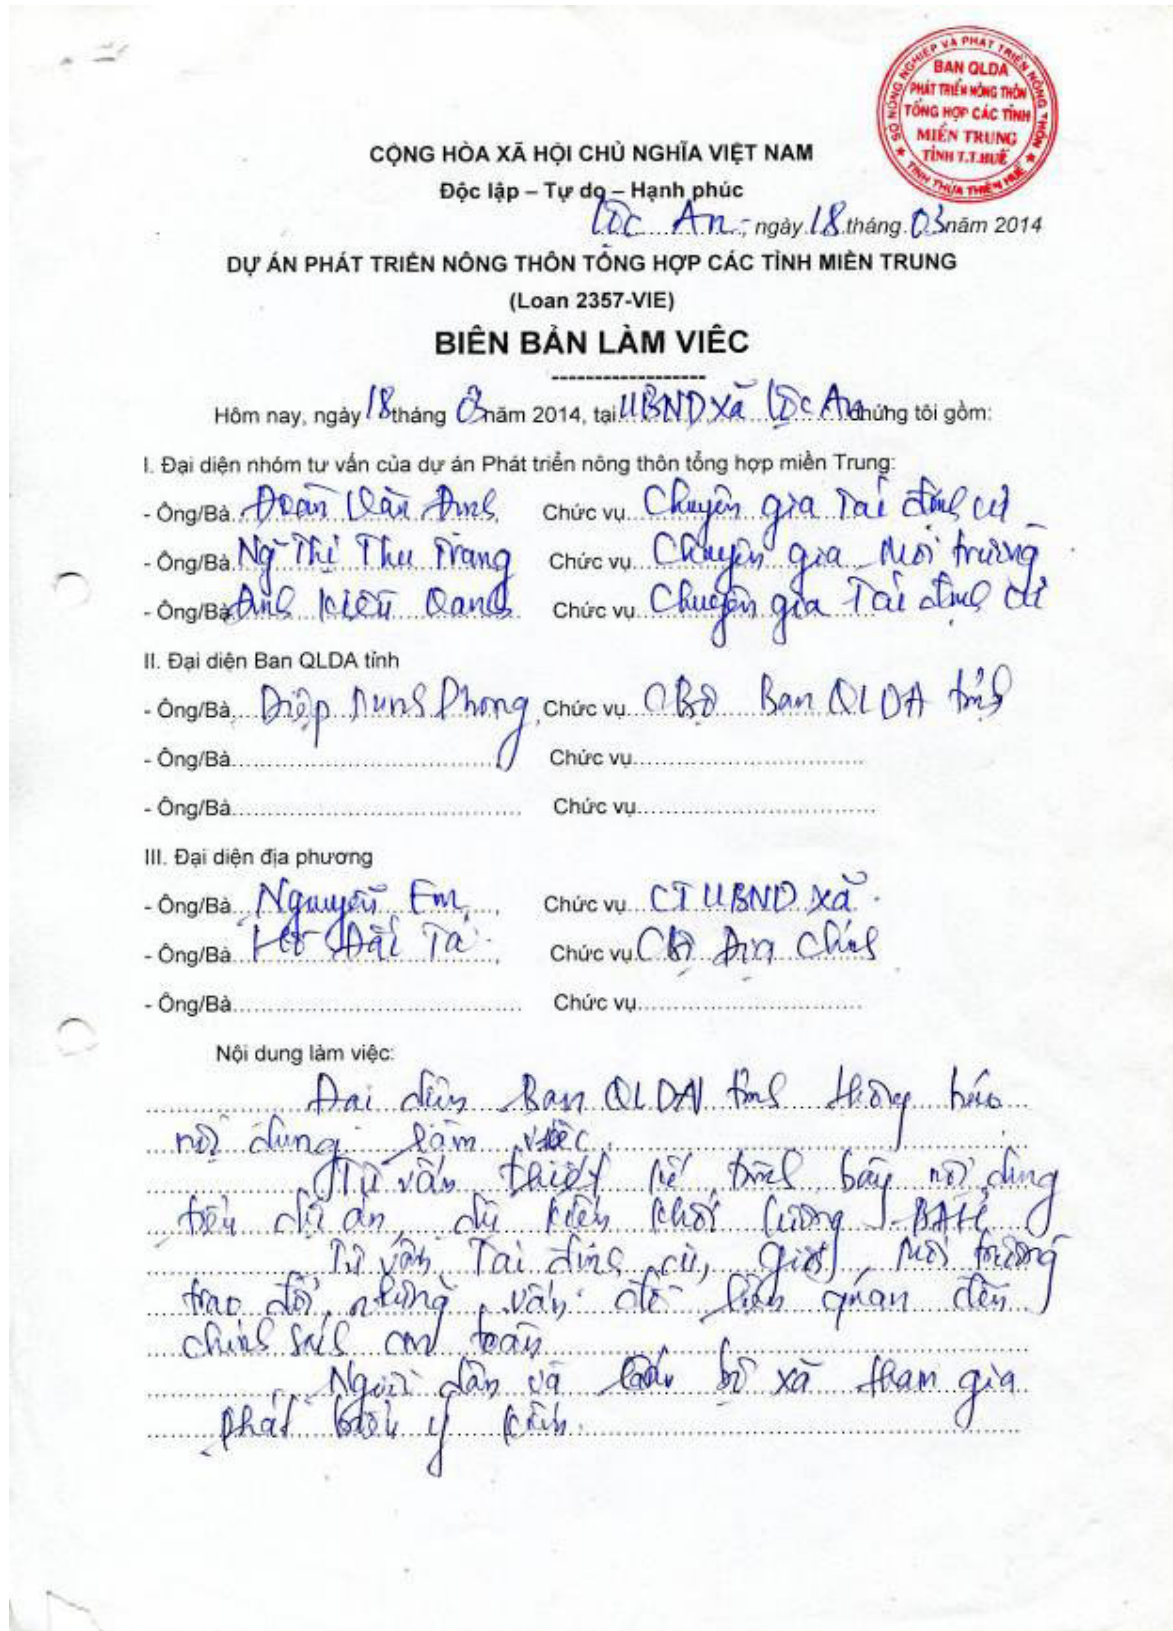 SỞ NÔNG NGHIỆP VÀ PHÁT TRIỂN NÔNG THÔN
BAN QLDA
PHÁT TRIỂN NÔNG THÔN
TỔNG HỢP CÁC TỈNH
MIỀN TRUNG
TỈNH T.T.HUẾ
TỈNH THỪA THIÊN HUẾ
CỘNG HÒA XÃ HỘI CHỦ NGHĨA VIỆT NAM
Độc lập – Tự do – Hạnh phúc
Lộc An, ngày 18 tháng 03 năm 2014
DỰ ÁN PHÁT TRIỂN NÔNG THÔN TỔNG HỢP CÁC TỈNH MIỀN TRUNG
(Loan 2357-VIE)
BIÊN BẢN LÀM VIÊC
------------------
Hôm nay, ngày 18 tháng 03 năm 2014, tại UBND xã Lộc An chúng tôi gồm:
I. Đại diện nhóm tư vấn của dự án Phát triển nông thôn tổng hợp miền Trung:
- Ông/Bà Đoàn Văn Chức vụ Chuyên gia Tái định cư
- Ông/Bà Ng Thị Thu Trang Chức vụ Chuyên gia Môi trường
- Ông/Bà Kiều Oanh Chức vụ Chuyên gia Tái định cư
II. Đại diện Ban QLDA tỉnh
- Ông/Bà Diệp Phong Chức vụ CBộ Ban QLDA tỉnh
- Ông/Bà Chức vụ
- Ông/Bà Chức vụ
III. Đại diện địa phương
- Ông/Bà Nguyễn Em Chức vụ CT UBND xã
- Ông/Bà Hồ Đắc Chức vụ CBộ Địa chính
- Ông/Bà Chức vụ
Nội dung làm việc:
Đại diện Ban QLDA tỉnh thông báo
nội dung làm việc.
Tư vấn thiết kế trình bày nội dung
tiểu dự án, dự kiến khối lượng BAH
Tư vấn Tái định cư, giới, Môi trường
trao đổi những vấn đề liên quan đến
chính sách an toàn
Người dân và cán bộ xã tham gia
phát biểu ý kiến.